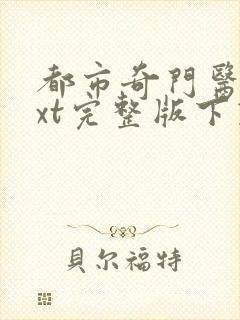 都市奇門醫
xt完整版下
貝尔福特